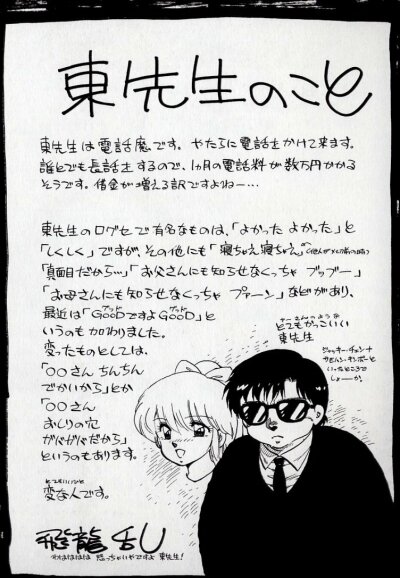 東先生のこと
東先生は電話魔です。やたらに電話をかけて来ます。
誰とでも長話をするので、1ヵ月の電話料が数万円かかる
そうです。借金が増える訳ですよねー…
東先生のログセで有名なものは、「よかった よかった」と
「しくしく」ですが、その他にも「寝ちゃえ寝ちゃえ」
「真面目だから…」「お父さんにも知らせなくっちゃ ブッブー」
「お母さんにも知らせなくっちゃ プァーン」などがあり、
最近は「GooDですよGooD」と
いうのも加わりました。
変ったものとしては、
「○○さん ちんちん
でかいから」とか
「○○さん
おしりの穴
ガバガバだから」
というのもあります。
とてもいいひと
変な人です。
飛龍乱
わはははは 怒っちゃいやですよ 東先生!
やーさんのような
とてもかっこいい
東先生
ジャッキー・チェン+
サモハン・キンポーと
いったところで
しょーか!